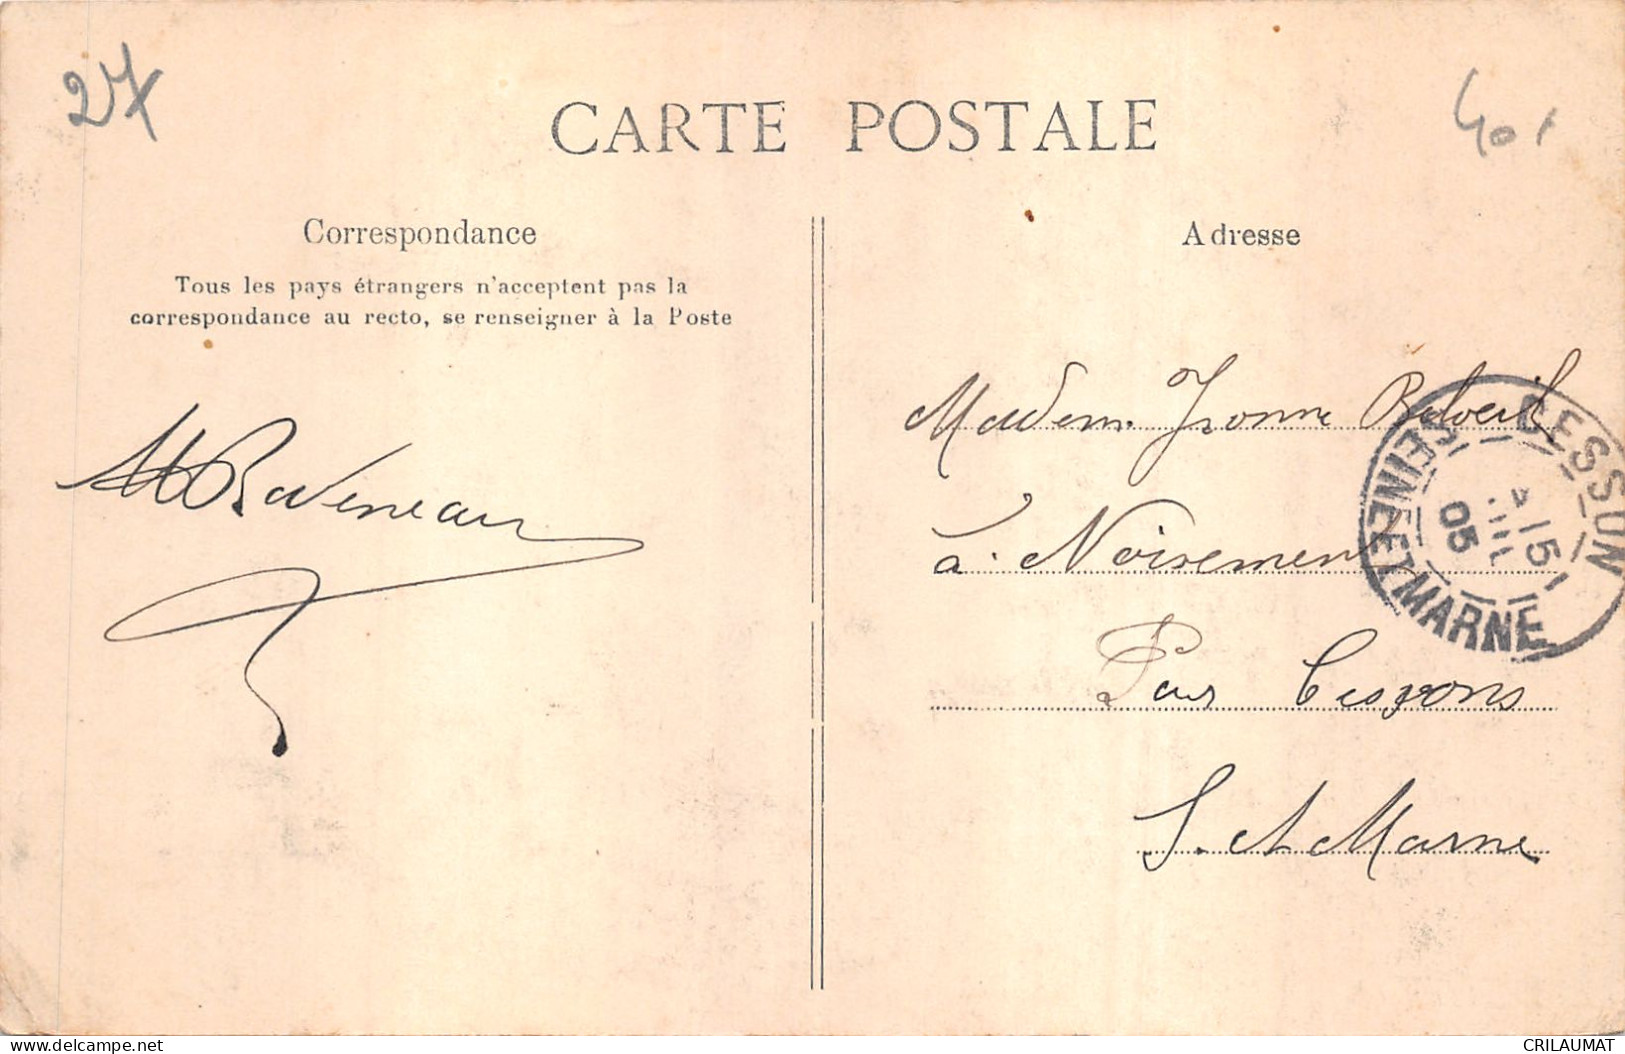 27
40f
CARTE POSTALE
Correspondance
Tous les pays étrangers n'acceptent pas la
correspondance au recto, se renseigner à la Poste
Baveneau
Adresse
Madem Yvonne
à Noisement
Par Cessons
S. et Marne
CESSON
5
05
SEINE ET MARNE
delcampe.net
CRILAUMAT